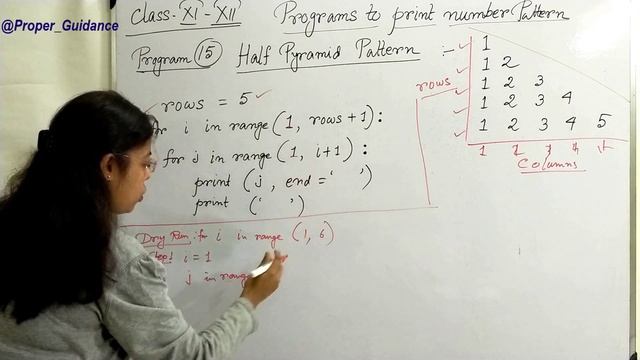 @Proper_Guidance
Class-XI-XII Programs to print number Pattern
Program 15 Half Pyramid Pattern :-
rows = 5
for i in range (1, rows+1):
for j in range (1, i+1):
print (j, end = ' ')
print (' ')
rows
1
1 2
1 2 3
1 2 3 4
1 2 3 4 5
1 2 3 4 5
Columns
Dry Run: for i in range (1, 6)
Step1 i = 1
j in range